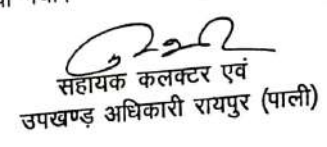 सहायक कलक्टर एवं
उपखण्ड अधिकारी रायपुर (पाली)